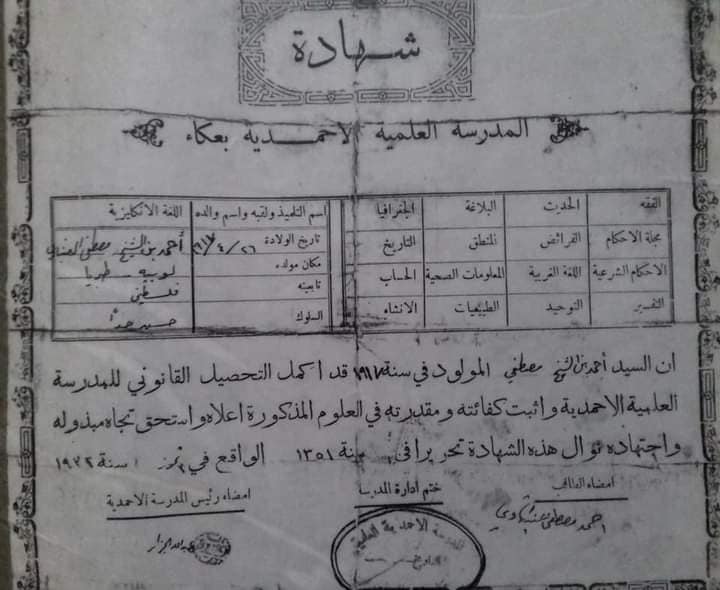 شهادة
المدرسة العلمية الاحمدية بعكاء
الفقه الحديث البلاغة الجغرافيا اسم التلميذ ولقبه واسم والده اللغة الانكليزية
مجلة الاحكام الفرائض المنطق التاريخ تاريخ الولادة ٢٦/٤/١٩١٧ أحمد بن الشيخ مصطفى
الاحكام الشرعية اللغة العربية المعلومات الصحية الحساب مكان مولده لوبيه - طبريا
تابعيته فلسطيني
التفسير التوحيد الطبيعيات الانشاء السلوك حسن جداً
ان السيد أحمد بن الشيخ مصطفى المولود في سنة ١٩١٧ قد اكمل التحصيل القانوني للمدرسة
العلمية الاحمدية واثبت كفائته ومقدرته في العلوم المذكورة اعلاه واستحق تجاه مبذوله
واجتهاده نوال هذه الشهادة تحريرا في سنة ١٣٥١ الواقع في تموز سنة ١٩٣٢
امضاء الطالب ختم ادارة المدرسة امضاء رئيس المدرسة الاحمدية
احمد مصطفى
المدرسة الاحمدية العلمية
عبدالله الجزار